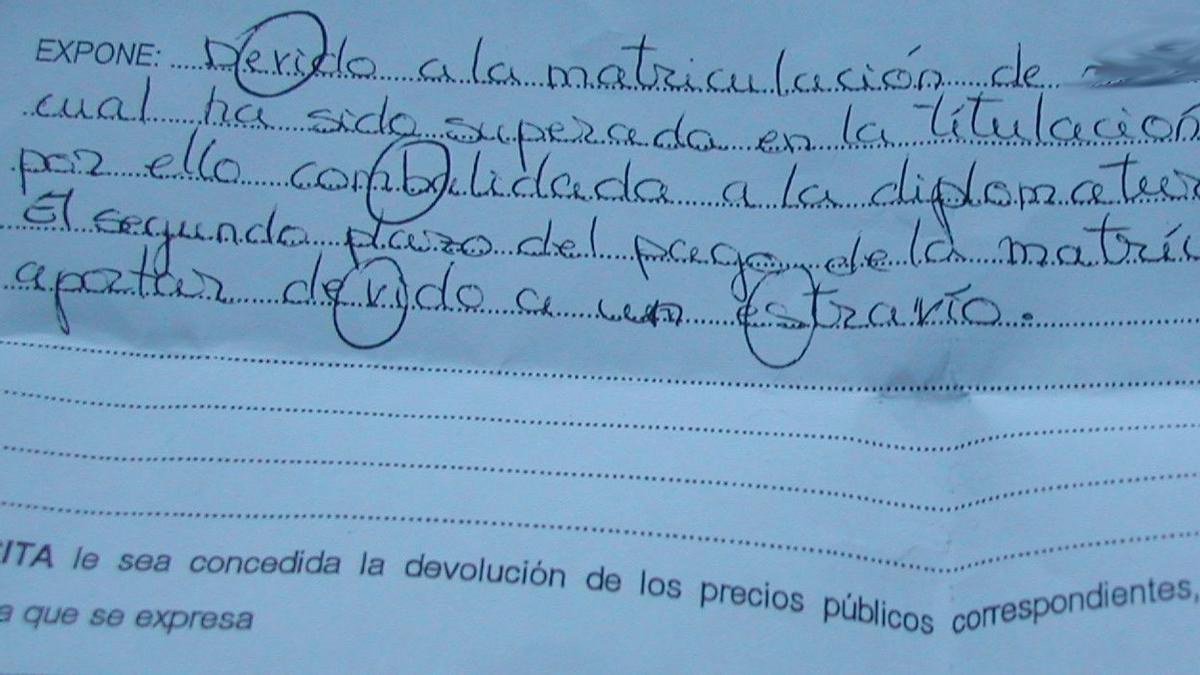 EXPONE: Devido a la matriculación de
cual ha sido superada en la titulación
por ello conbalidada a la diplomatur
El segundo plazo del pago de la matríc
aportar devido a un estravío.
ITA le sea concedida la devolución de los precios públicos correspondientes,
a que se expresa